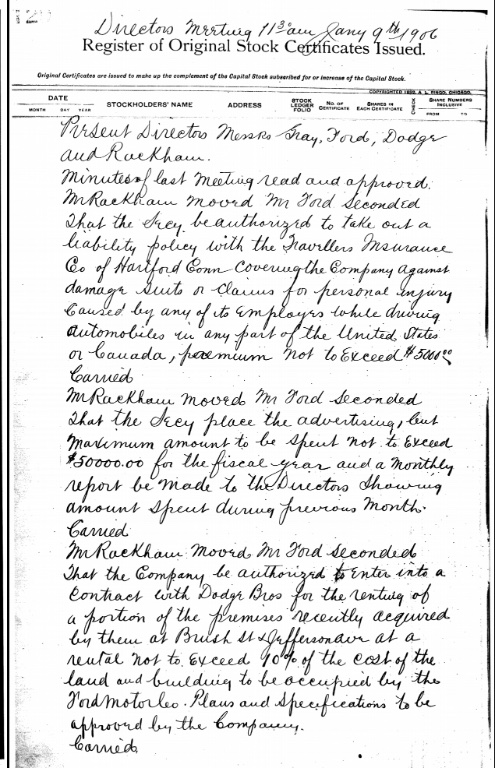 Directors Meeting 11 30 am Jany 9th 1906
Register of Original Stock Certificates Issued.
Original Certificates are issued to make up the complement of the Capital Stock subscribed for or increase of the Capital Stock.
COPYRIGHTED 1890, A. L. CHICAGO.
DATE
MONTH DAY YEAR
STOCKHOLDERS' NAME
ADDRESS
STOCK LEDGER FOLIO
No. OF CERTIFICATE
SHARES IN EACH CERTIFICATE
CHECK
SHARE NUMBERS INCLUSIVE
FROM TO
Present Directors Messrs Gray, Ford, Dodge
and Rackham.
Minutes of last Meeting read and approved.
Mr Rackham moved Mr Ford Seconded
That the Secy be authorized to take out a
liability policy with the Travellers Insurance
Co of Hartford Conn Covering the Company against
damage suits or Claims for personal injury
Caused by any of its Employes while driving
automobiles in any part of the United States
or Canada, premium not to Exceed $5000.00
Carried
Mr Rackham moved Mr Ford Seconded
That the Secy place the advertising, but
Maximum amount to be spent not to Exceed
$50000.00 for the fiscal year and a Monthly
report be made to the Directors Showing
amount Spent during previous Month.
Carried
Mr Rackham Moved Mr Ford Seconded
That the Company be authorized to Enter into a
Contract with Dodge Bros for the renting of
a portion of the premises recently acquired
by them at Brush St & Jefferson ave at a
rental not to Exceed 10% of the cost of the
land and building to be occupied by the
Ford Motor Co. Plans and Specifications to be
approved by the Company.
Carried